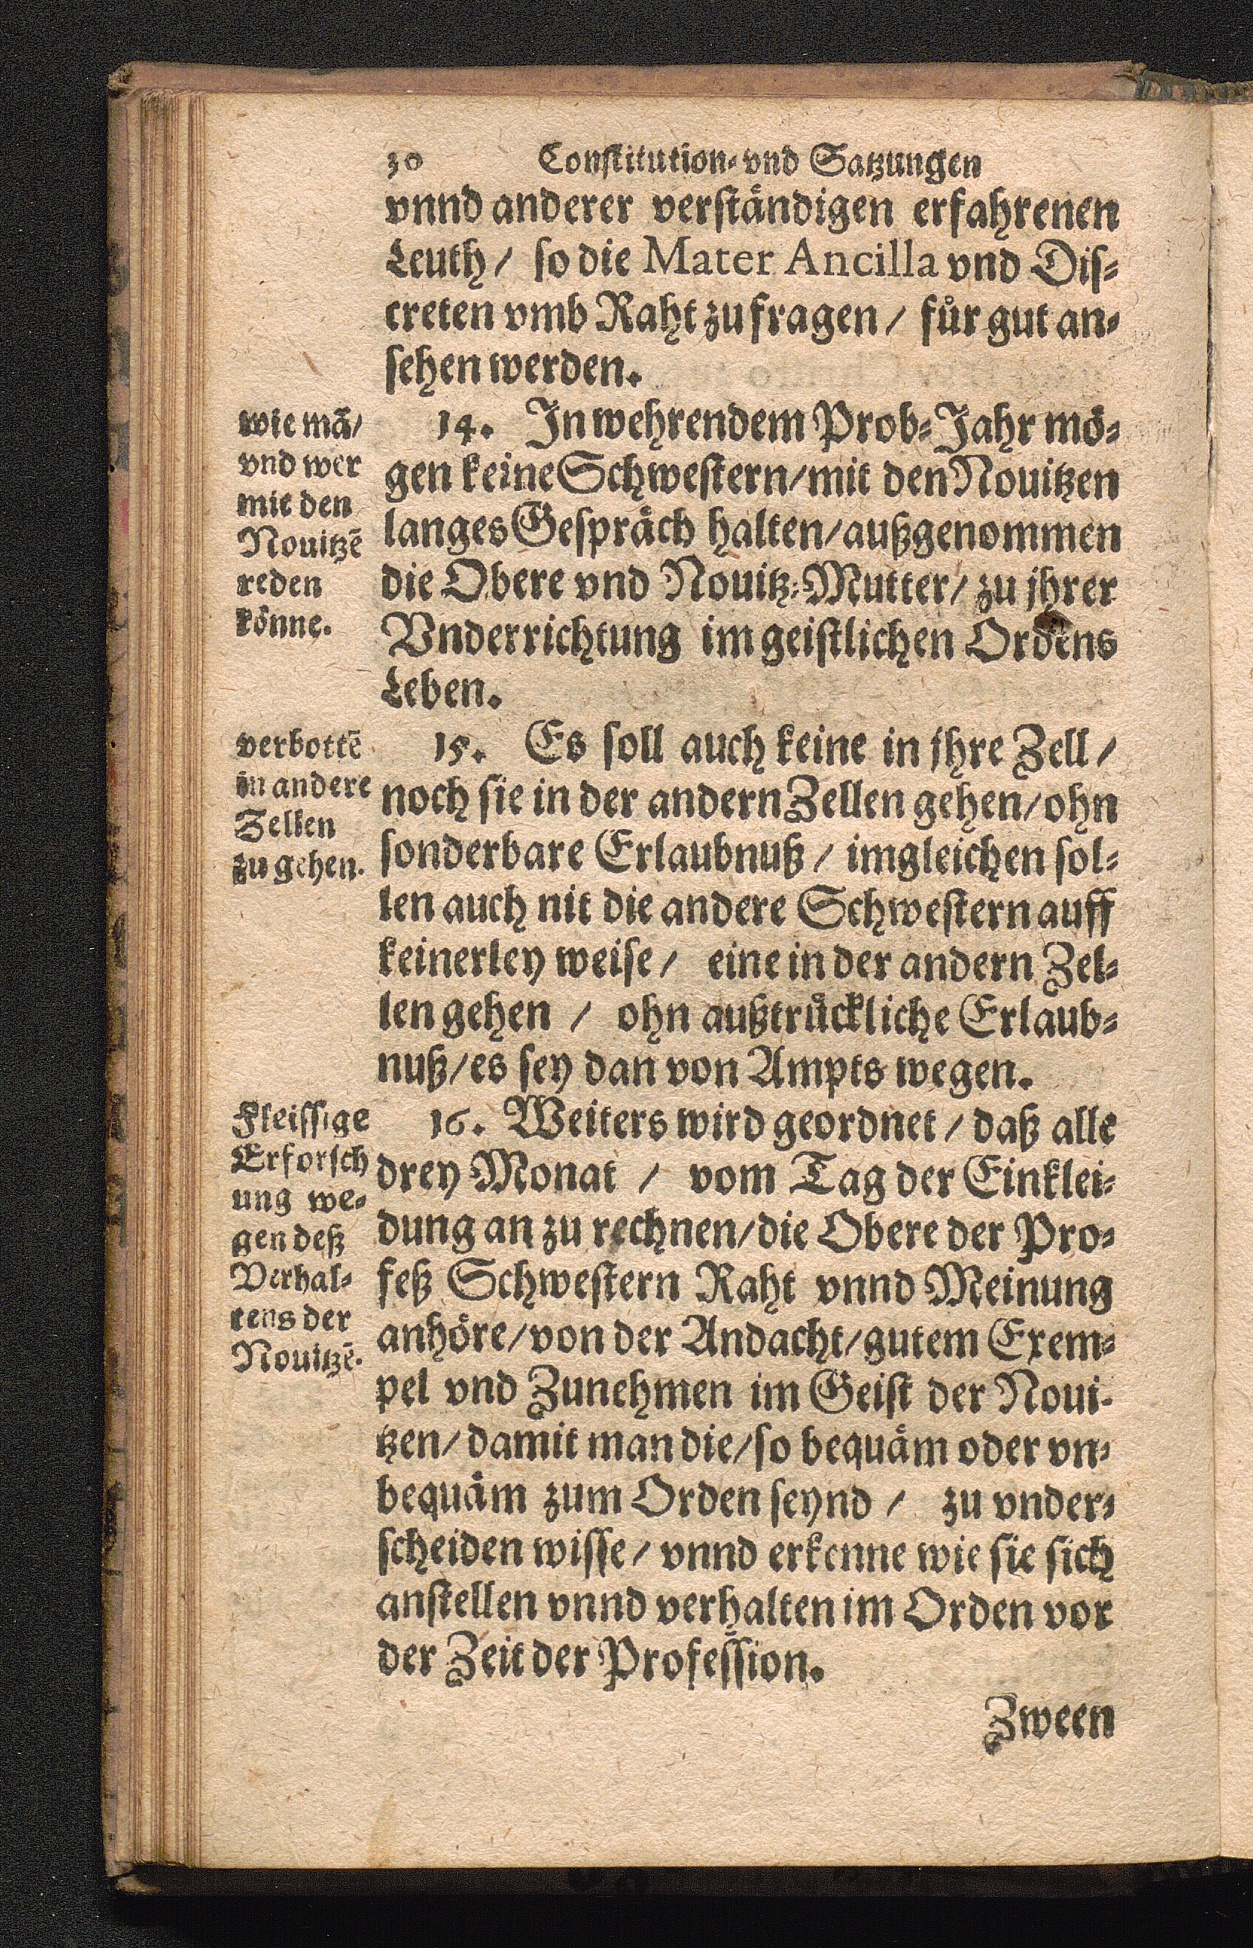 30 Constitution- vnd Satzungen
vnnd anderer verständigen erfahrenen
Leuth/ so die Mater Ancilla vnd Dis-
creten vmb Raht zu fragen/ für gut an-
sehen werden.
wie mã/
vnd wer
mit den
Nouitzẽ
reden
könne.
14. In wehrendem Prob-Jahr mö-
gen keine Schwestern/mit den Nouitzen
langes Gespräch halten/außgenommen
die Obere vnd Nouitz-Mutter/ zu jhrer
Vnderrichtung im geistlichen Ordens
Leben.
verbottẽ
in andere
Zellen
zu gehen.
15. Es soll auch keine in jhre Zell/
noch sie in der andern Zellen gehen/ohn
sonderbare Erlaubnuß/ imgleichen sol-
len auch nit die andere Schwestern auff
keinerley weise/ eine in der andern Zel-
len gehen / ohn außtrückliche Erlaub-
nuß/es sey dan von Ampts wegen.
Fleissige
Erforsch
ung we-
gen deß
Verhal-
tens der
Nouitzẽ.
16. Weiters wird geordnet/ daß alle
drey Monat / vom Tag der Einklei-
dung an zu rechnen/die Obere der Pro-
feß Schwestern Raht vnnd Meinung
anhöre/von der Andacht/gutem Exem-
pel vnd Zunehmen im Geist der Noui-
tzen/ damit man die/so bequäm oder vn-
bequäm zum Orden seynd / zu vnder-
scheiden wisse/ vnnd erkenne wie sie sich
anstellen vnnd verhalten im Orden vor
der Zeit der Profession.
Zween